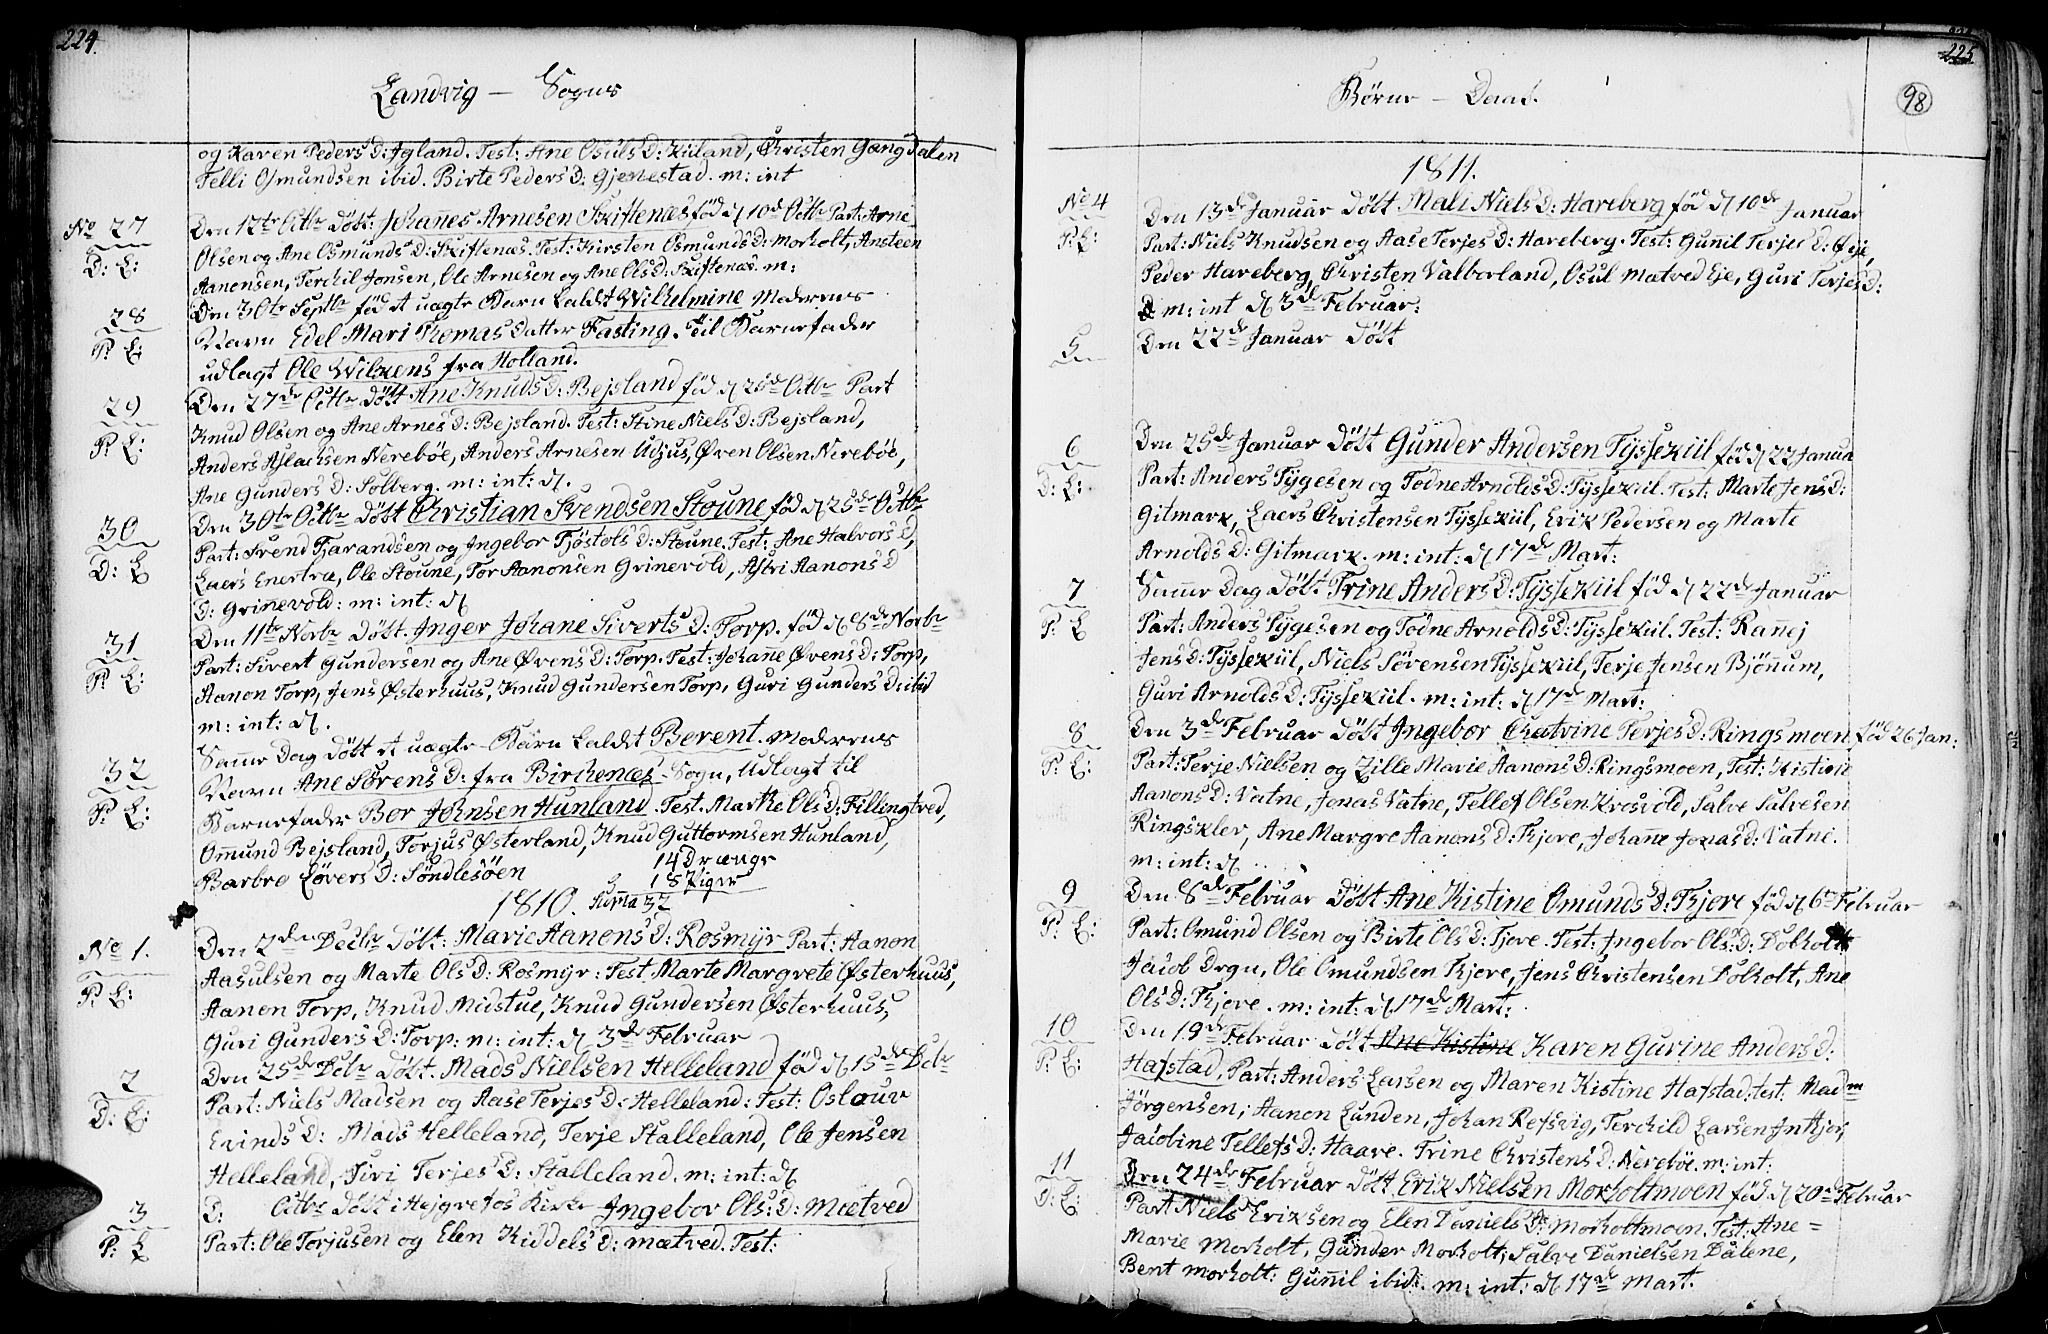 224.
Landvig — Sogns
og Karen Peders D: Igland. Test: Ane Osuls D: Kiiland, Christen Gangdalen
Telli Osmundsen ibid. Birte Peders D: Gjenestad. m: int
No 27 Den 12te Octbr Döbt: Johañes Arnesen Skiftenæs föd d 10d Octbr Part: Arne
D: E: Olsen og Ane Osmunds D: Skiftenæs. Test: Kirsten Osmunds D: Morholt, Ansteen
Aanonsen, Terchil Jonsen, Ole Arnesen og Ane Ols D: Skiftenæs. m:
28 Den 30te Septbr föd et uægte Barn kaldt Wilhelmine Moderens
P: E: Navn Edel Mari Thomas Datter Fasting. Til Barnefader
udlagt Ole Wilkens fra Holland.
29 Den 27de Octbr Döbt Ane Knuds D: Bejsland föd d 26d Octbr Part
P: E: Knud Olsen og Ane Arnes D: Bejsland. Test: Stine Niels D: Bejsland,
Anders Aslachsen Nereböe, Anders Arnesen Udjus, Øven Olsen Nereböe,
Ane Gunders D: Solberg. m: int: d.
30 Den 30te Octbr Döbt Christian Svendsen Stoune föd d 25de Octbr
D: E Part: Svend Tjarandsen og Ingebor Tjöstols D: Stoune. Test: Ane Halvors D,
Laers Enertræ, Ole Stoune, Tor Aanonsen Grinevold, Astri Aanons D
D: Griñevold: m: int: d
31 Den 11te Novbr Döbt. Inger Johane Siverts D: Torp. föd d 8de Novbr
P: E: Part: Sivert Gundersen og Ane Øvens D: Torp. Test: Johañe Øvens D: Torp,
Aanon Torp, Jens Østerhuus, Knud Gundersen Torp, Guri Gunders D: ibid
m: int: d.
32 Samme Dag Döbt et uægte Barn kaldt Berent. Moderens
P: E: Navn Ane Sørens D: fra Birchenæs Sogn, Udlagt til
Barnefader Bor Johnsen Hunland. Test. Marthe Ols D: Fillingtved,
Omund Bejsland, Torjus Østerland, Knud Guttormsen Hunland,
Barbro Løvers D: Söndlesöen 14 Drænge
18 Piger
1810. Suma 32
No 1. Den 2den Decbr Döbt: Marie Aanons D: Rosmÿr Part: Aanon
P: E: Aasulsen og Marte Ols D: Rosmÿr: Test Marte Margrete Østerhuus,
Aanon Torp, Knud Midstue, Knud Gundersen Østerhuus,
Guri Gunders D: Torp: m: int: d 3de Februar
2 Den 25de Decbr Döbt. Mads Nielsen Helleland föd d 15de Decbr
D: E: Part: Niels Madsen og Aase Terjes D: Helleland: Test: Oslouv
Evinds D: Mads Helleland, Terje Stalleland, Ole Jensen
Helleland, Siri Terjes D: Stalleland. m: int: d
3 D: Octbr Döbt i Hejgrefos Kirke Ingebor Ols: D: Mætved
P: E Part: Ole Torjusen og Elen Kiddels D: Mætved. Test:
225
98
Börne — Daab.
1811.
No 4 Den 13de Januar Döbt Mali Niels D: Hareberg föd d 10de Januar
P: E: Part: Niels Knudsen og Aase Terjes D: Hareberg. Test: Gunil Terjes D: Øÿe,
Peder Hareberg, Christen Valberland, Osul Mætved Eje, Guri Terjes D:
m: int d 3de Februar:
5 Den 22de Januar Döbt
6 Den 25de Januar Döbt Gunder Andersen Tÿssekiil föd d 22 Janua
D: E: Part: Anders Tÿgesen og Todne Arnolds D: Tÿssekiil. Test: Marte Jens D:
Gitmark, Laers Christensen Tÿssekiil, Erik Pedersen og Marte
Arnolds D: Gitmark. m: int: d 17de Mart:
7 Samme Dag Döbt Trine Anders D: Tÿssekiil föd d 22de Januar
P: E Part: Anders Tÿgesen og Todne Arnolds D: Tÿssekiil. Test: Rañej
Jens D: Tÿssekiil, Niels Sörensen Tÿssekiil, Terje Jensen Bjönum,
Guri Arnolds D: Tÿssekiil. m: int: d 17de Mart:
8 Den 3de Februar Döbt Ingebor Chatrine Terjes D: Ringsmoen föd 26 Jan:
P: E: Part: Terje Nielsen og Zille Marie Aanons D: Ringsmoen, Test: Kistien
Aanons D: Vatne, Jonas Vatne, Tellef Olsen Krosvold, Salve Salvesen
Ringskler, Ane Margre Aanons D: Tjore, Johañe Jonas D: Vatne.
m: int: d
9 Den 8de Februar Döbt Ane Kistine Omunds D: Tjore föd d 6te Februar
P: E: Part: Omund Olsen og Birte Ols D: Tjore. Test: Ingebor Ols: D: Dolholt
Jacob Drgn, Ole Omundsen Tjore, Jens Christensen Dolholt, Ane
Ols D: Tjore. m: int: d 17de Mart:
10 Den 19de Februar Döbt Ane Kistine Karen Gurine Anders D:
P: E: Hafstad, Part: Anders Larsen og Maren Kistine Hafstad: test: Madm
Jörgensen; Aanon Lunden, Johan Refsvig, Terchild Larsen Intkjor,
Jacobine Tellefs D: Haave. Trine Christens D: Nerebøe. m: int:
11 Den 24de Februar Döbt Erik Nielsen Morholtmoen föd d 20de Februar
D: E: Part Niels Eriksen og Elen Daniels D: Morholtmoen. Test: Ane =
Marie Morholt, Gunder Morholt, Salve Danielsen Dalene,
Bent Morholt: Guñil ibid: m: int: d 17de Mart.